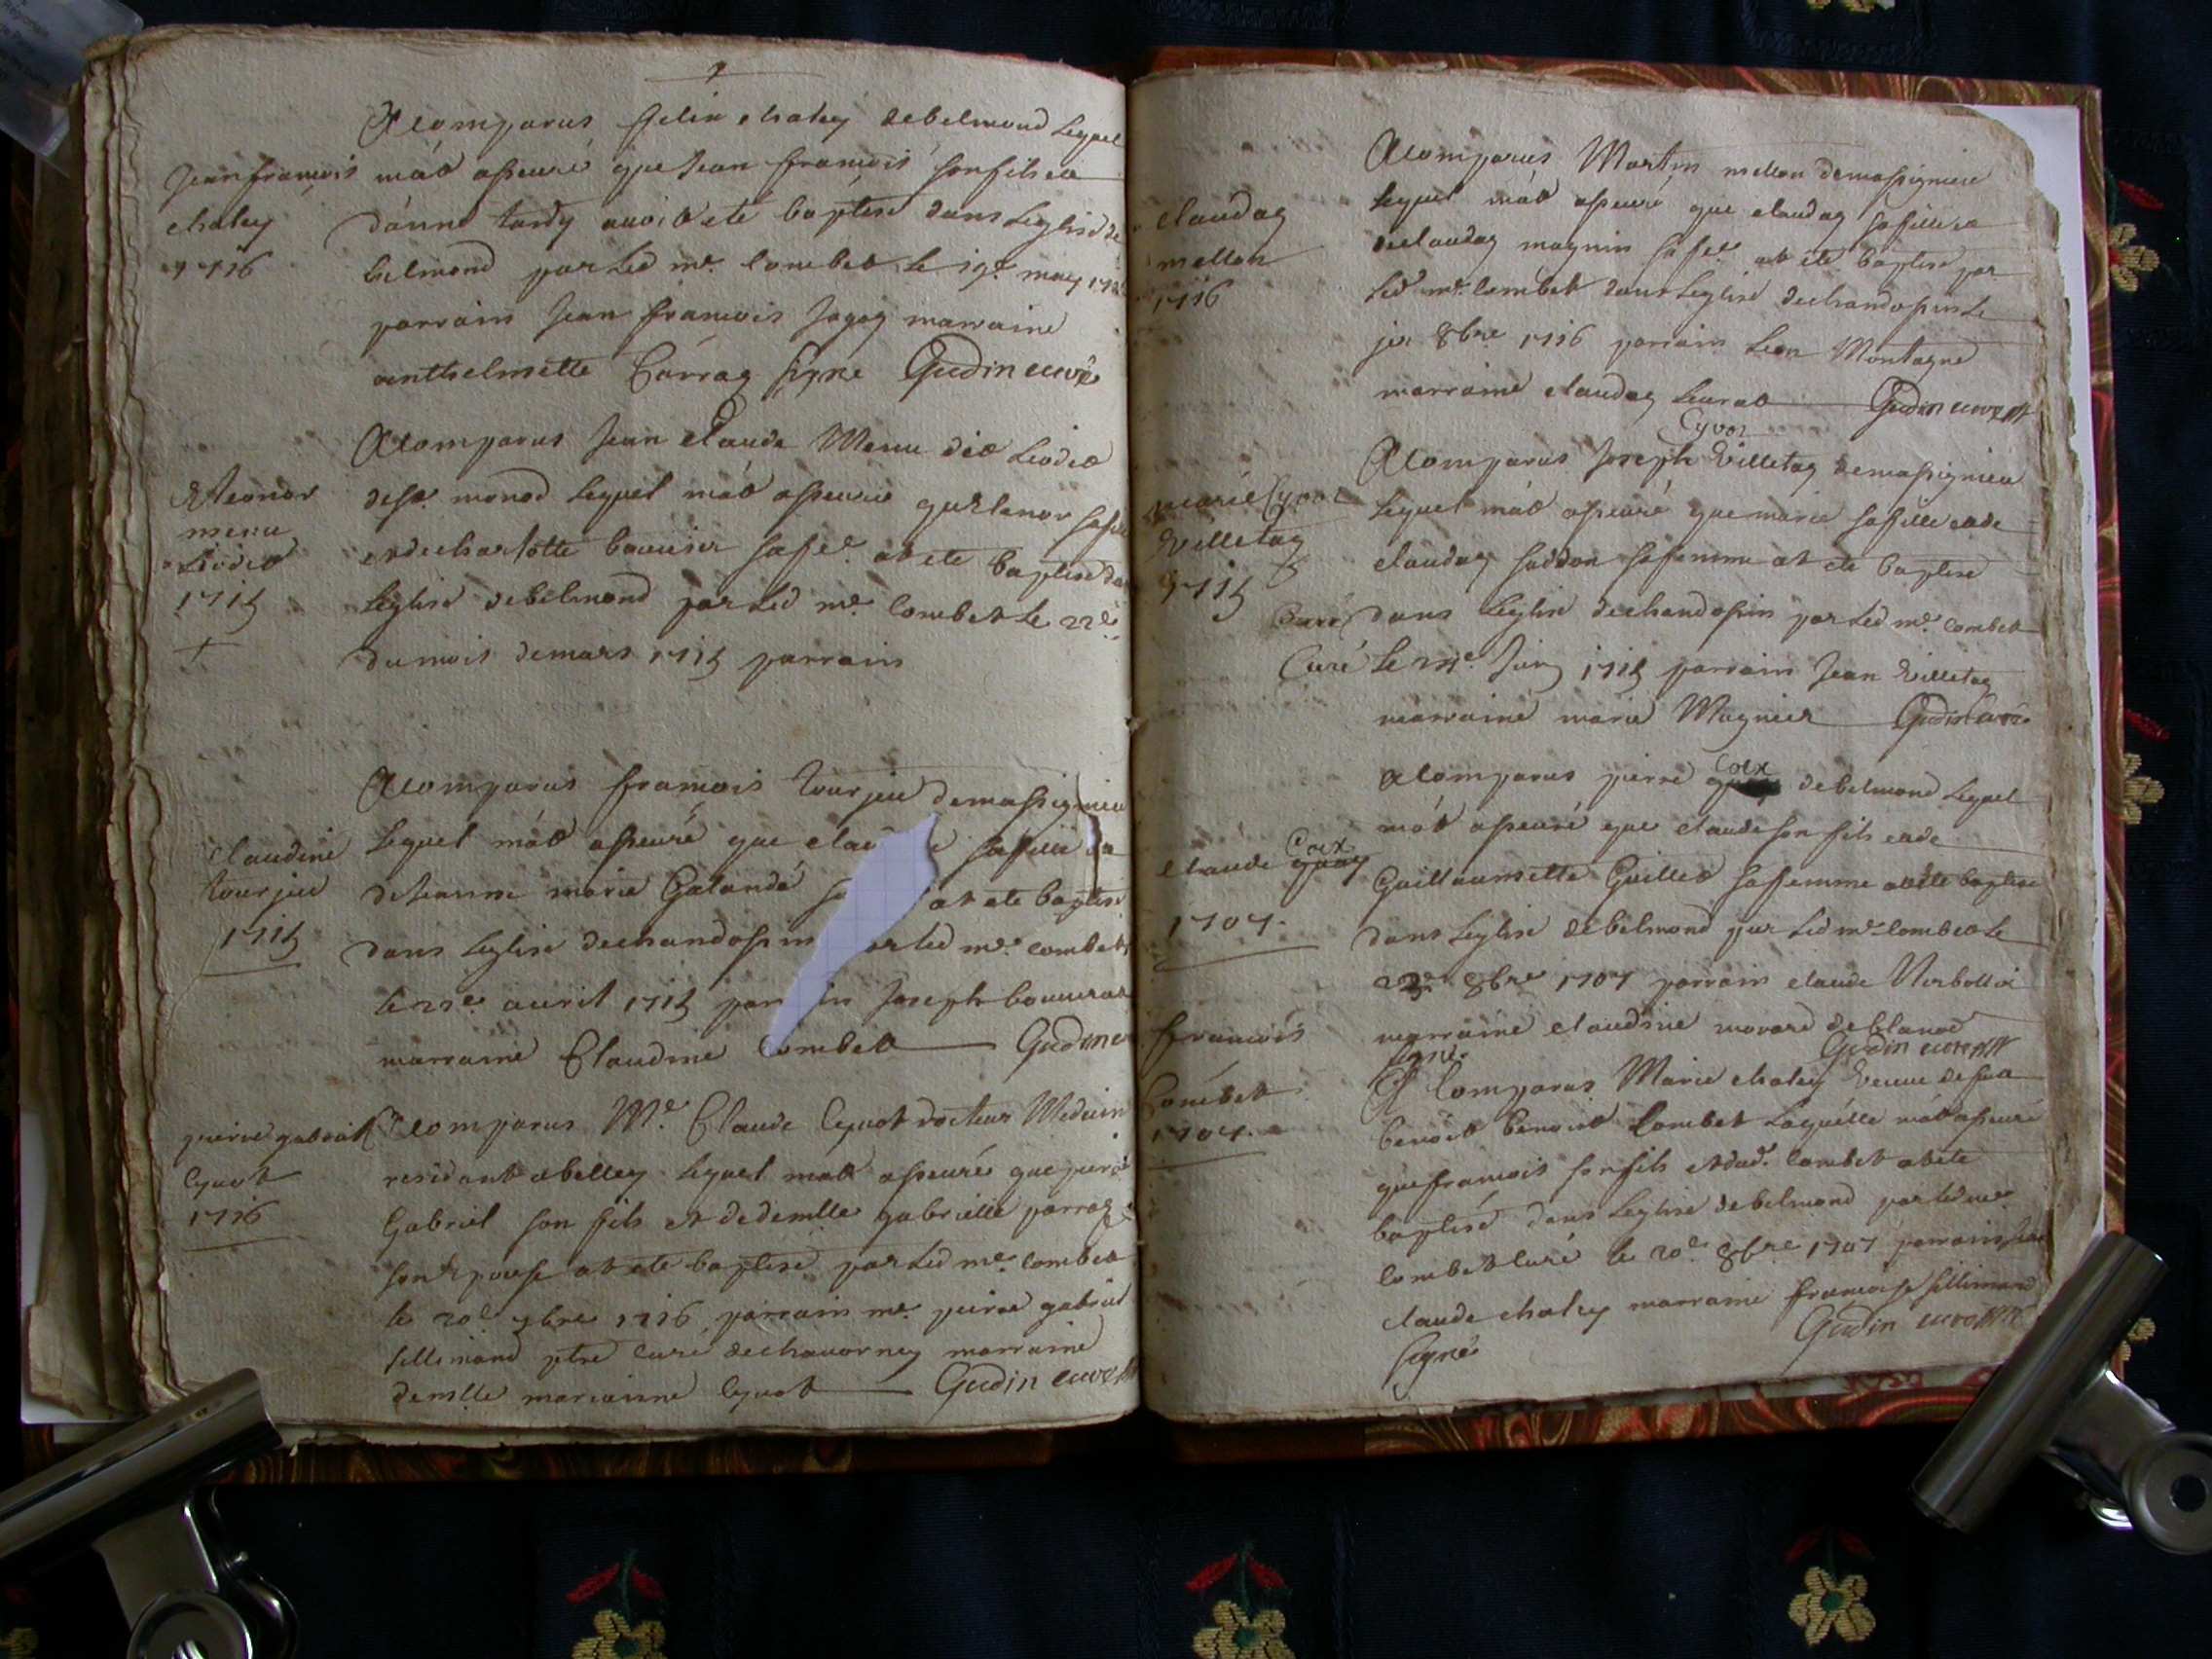 A Comparus felix chaley de belmond lequel
Jean francois
chaley
1716
m'at asseuré que Jean francois son fils et
d'anne tardy avoit ete baptisé dans Leglise de
belmond par Led mre. Combet le 19e may
parrain Jean francois Jagog marraine
anthelmette Carrag signe Gudin curé
A Comparus Jean Claude Menu dit Liodet
Eleonor
menu
Liodet
1715
de St. monod lequel m'at asseuré qu'Elanor sa
et de charlotte bouvier sa fe. at ete baptisé
Leglise de belmond par Led mre. Combet le 22e.
du mois de mars 1715 parrain
A Comparus francois tourjeu de massignieu
Claudine
tourjeu
1715
Lequel m'at asseuré que sa fille
de Jeanne marie Galande at ete baptisé
dans Leglise de chandossin Led mre. Combet
le avril 1715 Joseph
marraine Claudine Combet Gudin
pierre gabriel
Cyvot
1716
A Comparus Mre. Claude Cyvot docteur Medecin
residant a belley lequel m'at asseuré que pierre
Gabriel son fils et de demlle gabrielle parrag
son Epouse at ete baptisé par Led mre. Combet
le 20e 1716 parrain mre. pierre gabriel
sillimand ptre curé de chavorney marraine
demlle marianne Cyvot Gudin curé
Claudag
mellon
1716
A Comparus Martin mellon de massignieu
Lequel m'at asseuré que claudag sa fille et
de claudag magnin sa fe. at ete baptisé par
Led mre. Combet dans Leglise de chandossin Le
8bre 1716 parrain Leon Montagne
marraine claudag Gudin curé
Cyvoz
marie Cyvoz
Villetag
1715
A Comparus Joseph Villetag de massignieu
Lequel m'at asseuré que marie sa fille et de
claudag sa femme at ete baptisé
dans Leglise de chandossin par Led mre. Combet
Curé le Juin 1715 parrain Jean Villetag
marraine marie Magnier Gudin curé
Coex
A Comparus pierre de belmond Lequel
m'at asseuré que claude son fils et de
Coex
claude
1707.
Guillaumette Guillet sa femme at ete baptisé
dans Leglise de belmond par Led mre. Combet Le
8bre 1707 parrain claude
marraine claudine
signé. Gudin curé
francois
Combet
1707.
A Comparus Marie chaley veuve de feu
benoit benoit Combet Laquelle m'at asseuré
que francois son fils et dud. Combet at ete
baptisé dans Leglise de belmond par led mre.
Combet curé le 20e. 8bre 1707 parrain
claude chaley marraine francoise sillimand
signé Gudin curé